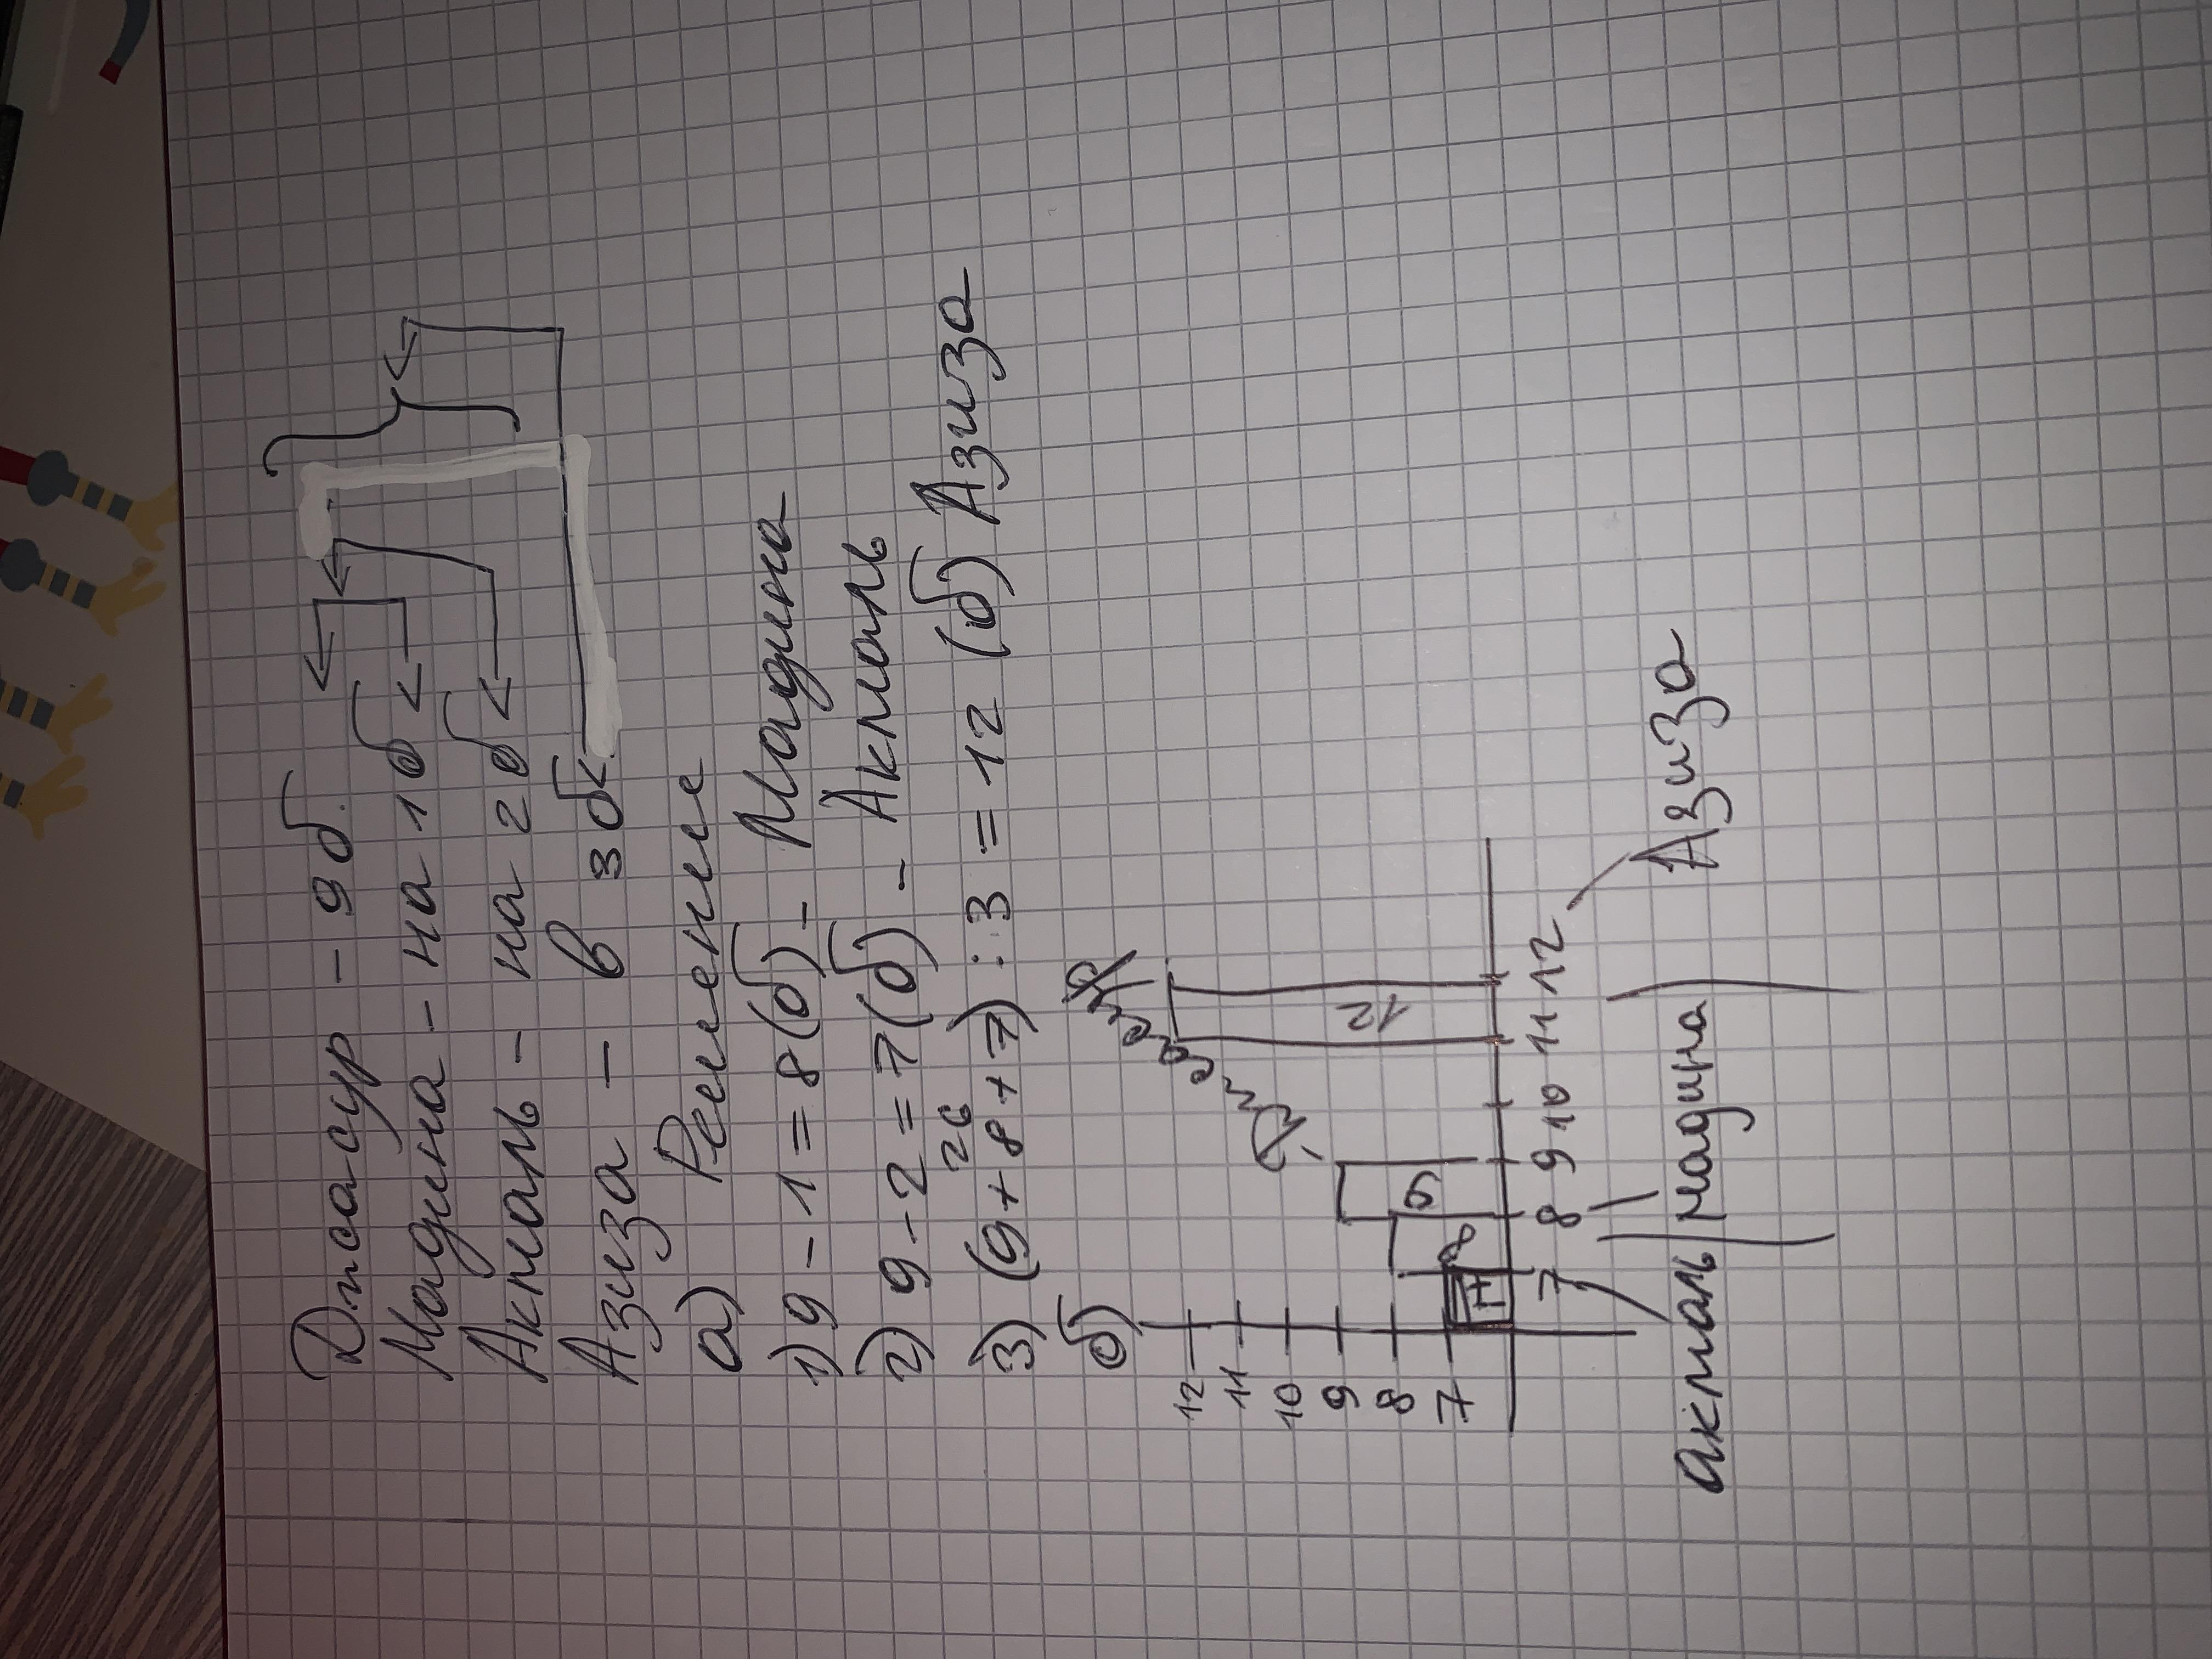 Джасур - 9б.
Мадина - на 1б<
Акмаль - на 2б<
Азиза - в 3б<
а) Решение
1) 9 - 1 = 8 (б) - Мадина
2) 9 - 2 = 7 (б) - Акмаль
26
3) (9 + 8 + 7) : 3 = 12 (б) Азиза
б)
12
11
10
9
8
7
7 8 9 12
7 8 9 10 11 12
Акмаль Мадина Азиза